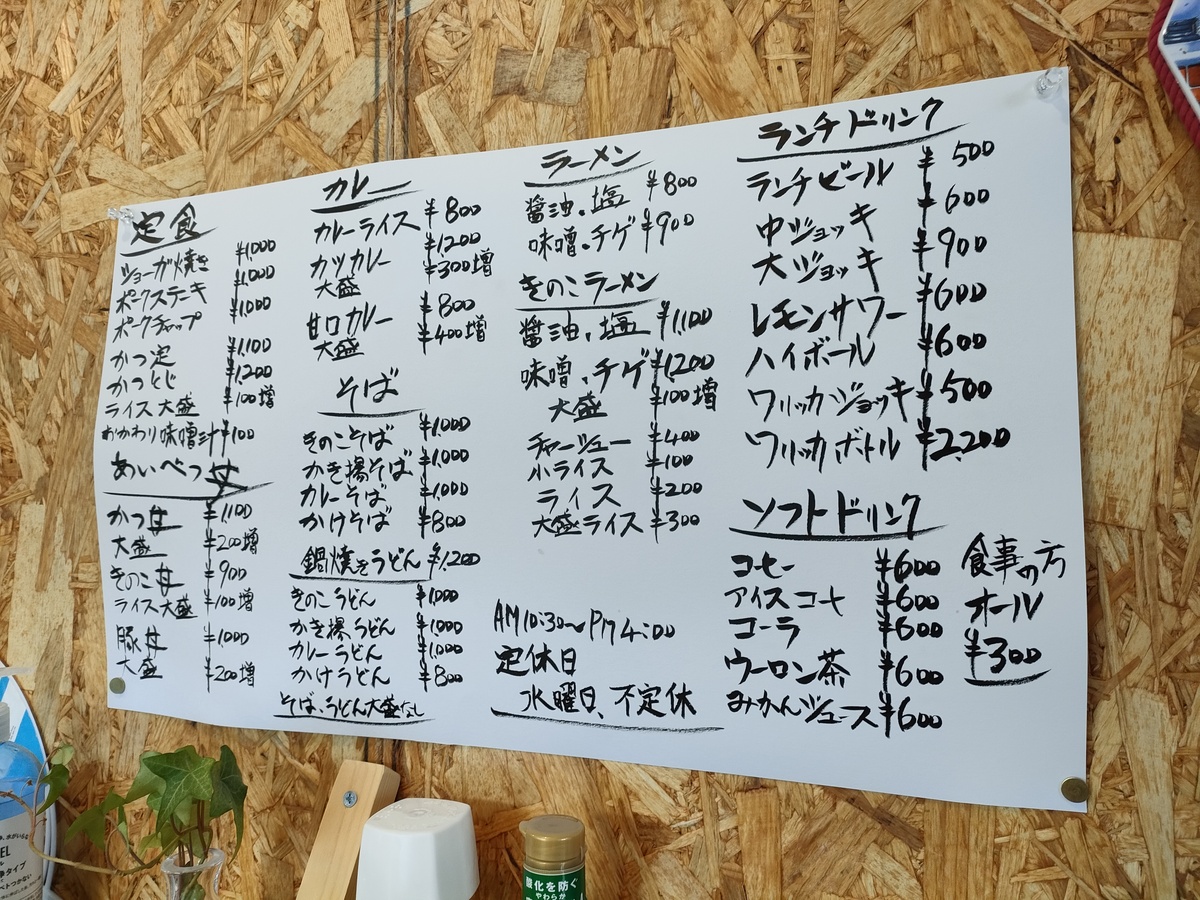 定食
ショーガ焼き ¥1,000
ポークステーキ ¥1,000
ポークチャップ ¥1,000
かつ定 ¥1,100
かつとじ ¥1,200
ライス大盛 ¥100増
おかわり味噌汁 ¥100
あいべつ丼
かつ丼 ¥1,100
大盛 ¥200増
きのこ丼 ¥900
ライス大盛 ¥100増
豚丼 ¥1,000
大盛 ¥200増
カレー
カレーライス ¥800
カツカレー ¥1,200
大盛 ¥300増
甘口カレー ¥800
大盛 ¥400増
そば
きのこそば ¥1,000
かき揚そば ¥1,000
カレーそば ¥1,000
かけそば ¥800
鍋焼きうどん ¥1,200
きのこうどん ¥1,000
かき揚うどん ¥1,000
カレーうどん ¥1,000
かけうどん ¥800
そば、うどん大盛なし
ラーメン
醤油、塩 ¥800
味噌、チゲ ¥900
きのこラーメン
醤油、塩 ¥1,100
味噌、チゲ ¥1,200
大盛 ¥100増
チャーシュー ¥400
小ライス ¥100
ライス ¥200
大盛ライス ¥300
AM10:30〜PM4:00
定休日
水曜日、不定休
ランチドリンク
ランチビール ¥500
中ジョッキ ¥600
大ジョッキ ¥900
レモンサワー ¥600
ハイボール ¥600
ワリッカジョッキ ¥500
ワリッカボトル ¥2,200
ソフトドリンク
コーヒー ¥600
アイスコーヒー ¥600
コーラ ¥600
ウーロン茶 ¥600
みかんジュース ¥600
食事の方
オール
¥300
酸化を防ぐ
やわらか